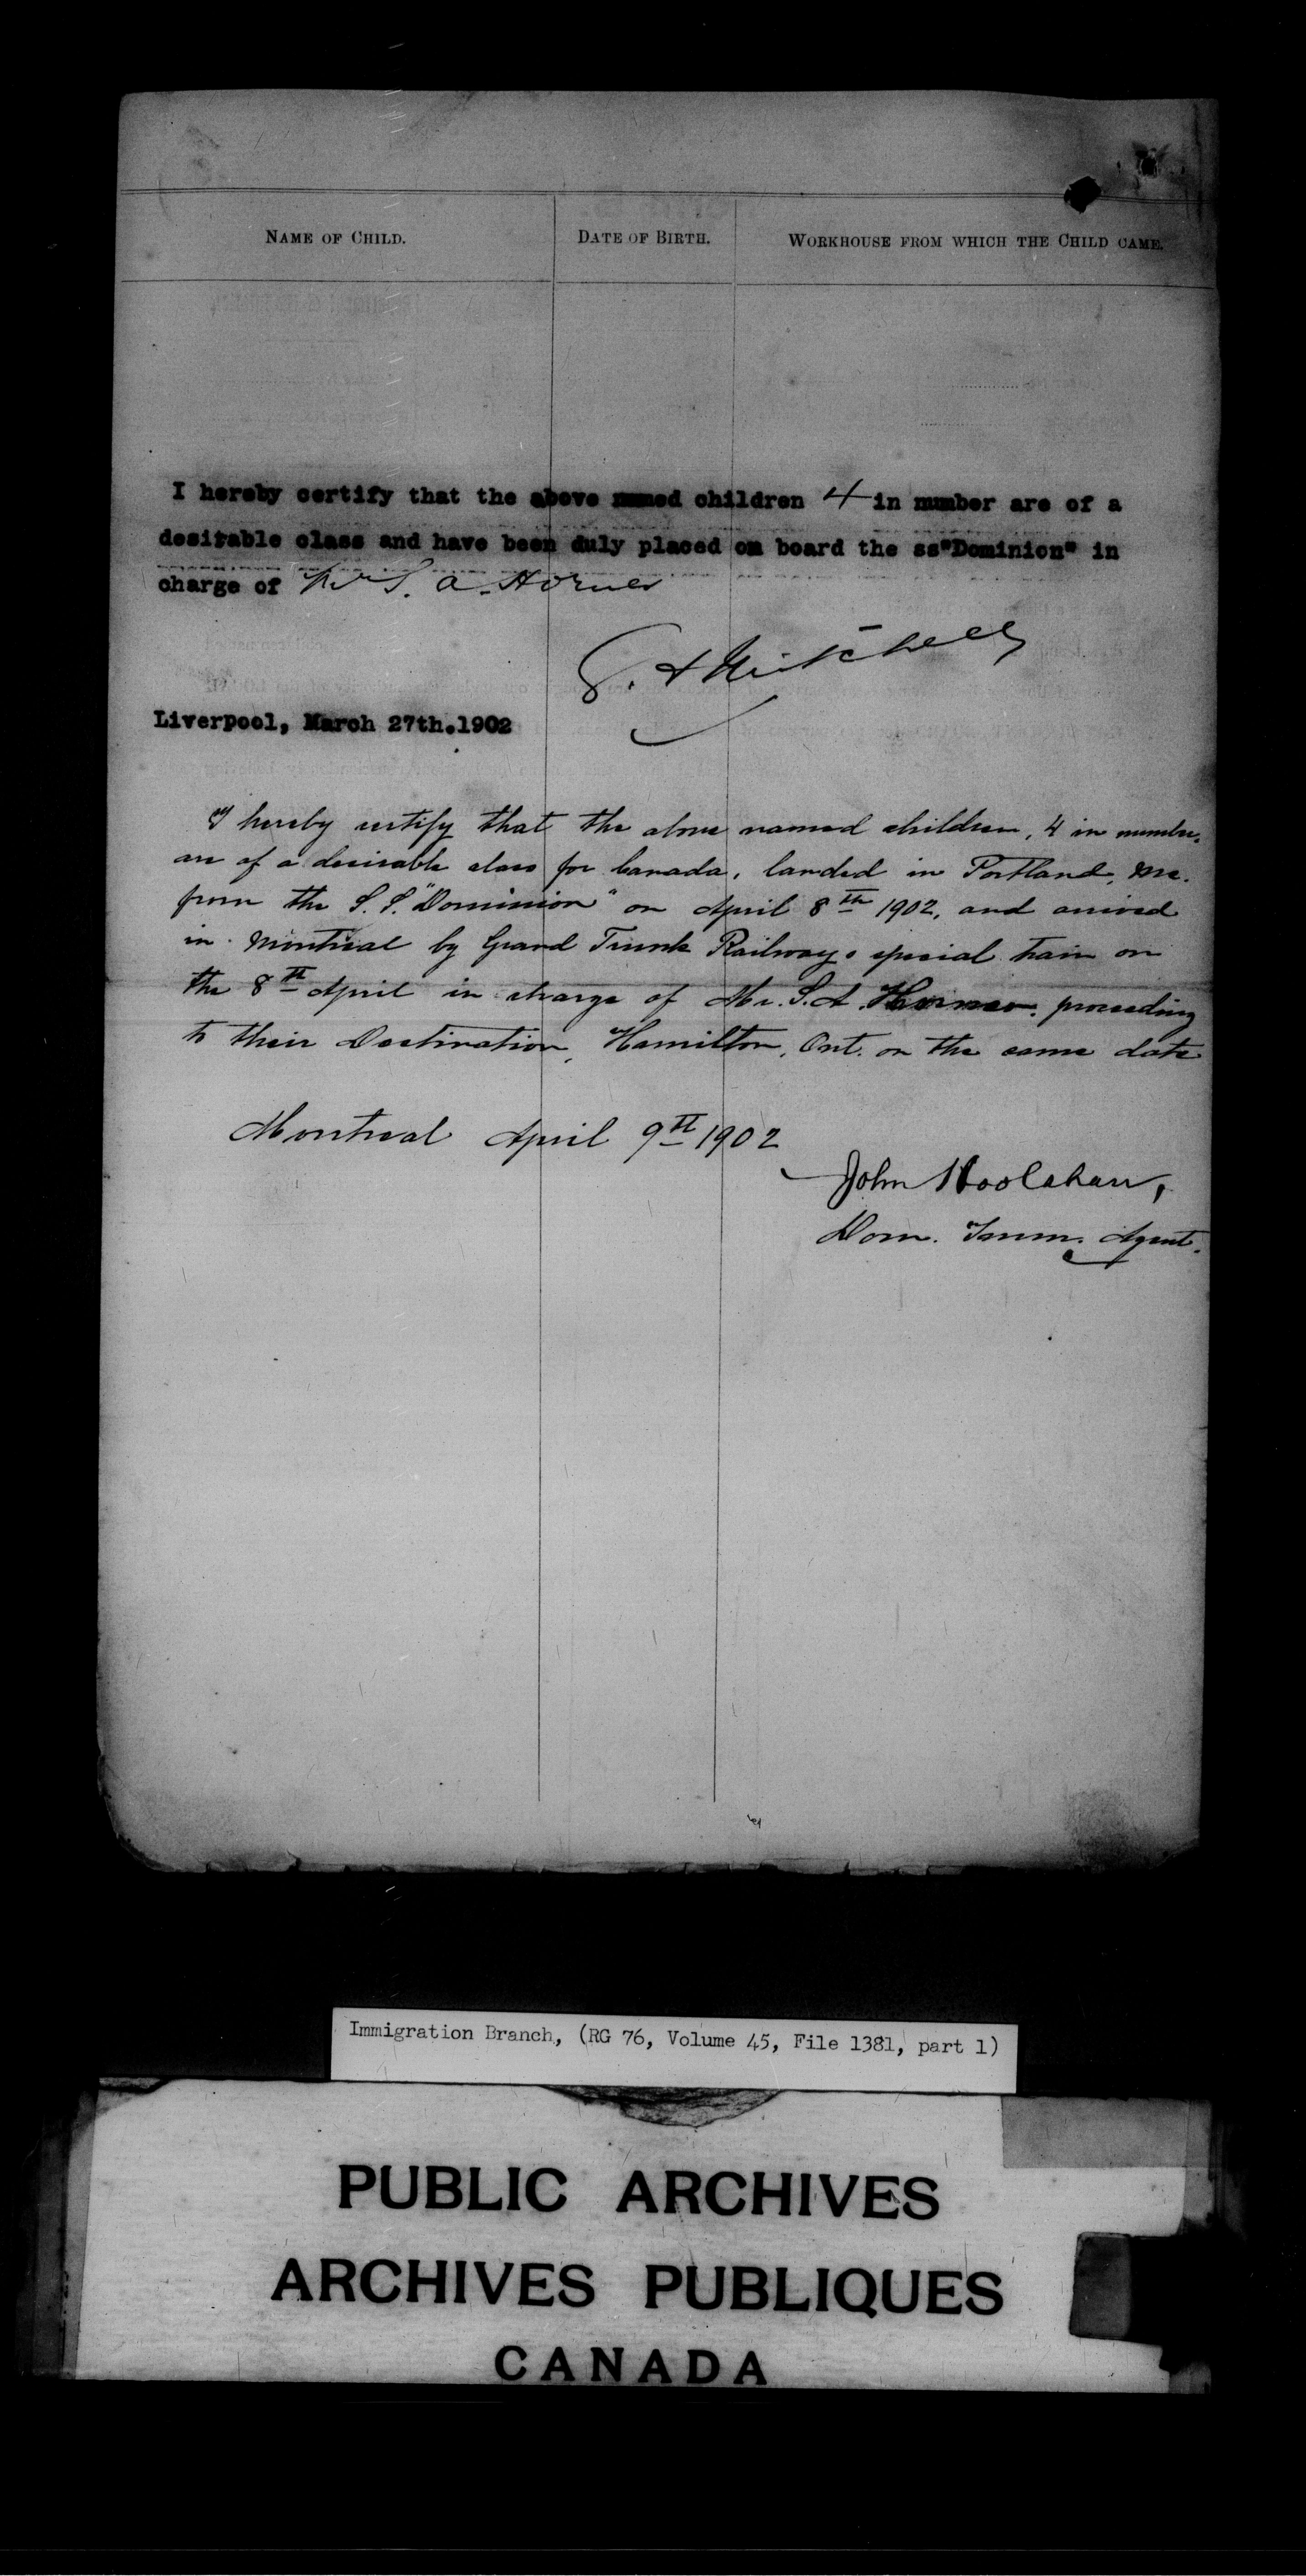 NAME OF CHILD.
DATE OF BIRTH.
WORKHOUSE FROM WHICH THE CHILD CAME.
I hereby certify that the above named children 4 in number are of a
desirable class and have been duly placed on board the ss"Dominion" in
charge of Mr S. A. Horner
Mitchell
Liverpool, March 27th.1902
I hereby certify that the above named children, 4 in number,
are of a desirable class for Canada, landed in Portland, Me.
from the S.S. "Dominion" on April 8th 1902, and arrived
in Montreal by Grand Trunk Railways special train on
the 8th April in charge of Mr. S.A. Horner. proceeding
to their Destination, Hamilton, Ont. on the same date
Montreal April 9th 1902
John Hoolahan,
Dom. Imm. Agent.
Immigration Branch, (RG 76, Volume 45, File 1381, part 1)
PUBLIC ARCHIVES
ARCHIVES PUBLIQUES
CANADA